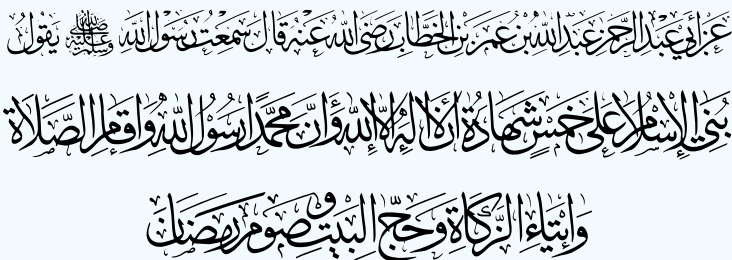 عن أبي عبد الرحمن عبد الله بن عمر بن الخطاب رضى الله عنه قال سمعت رسول الله ﷺ يقول
بُنِيَ الإِسْلَامُ عَلَى خَمْسٍ شَهَادَةُ أَنْ لَا إِلَهَ إِلَّا اللهُ وَأَنَّ مُحَمَّدًا رَسُولُ اللهِ وَإِقَامِ الصَّلَاةِ
وَإِيتَاءِ الزَّكَاةِ وَحَجِّ الْبَيْتِ وَصَوْمِ رَمَضَانَ